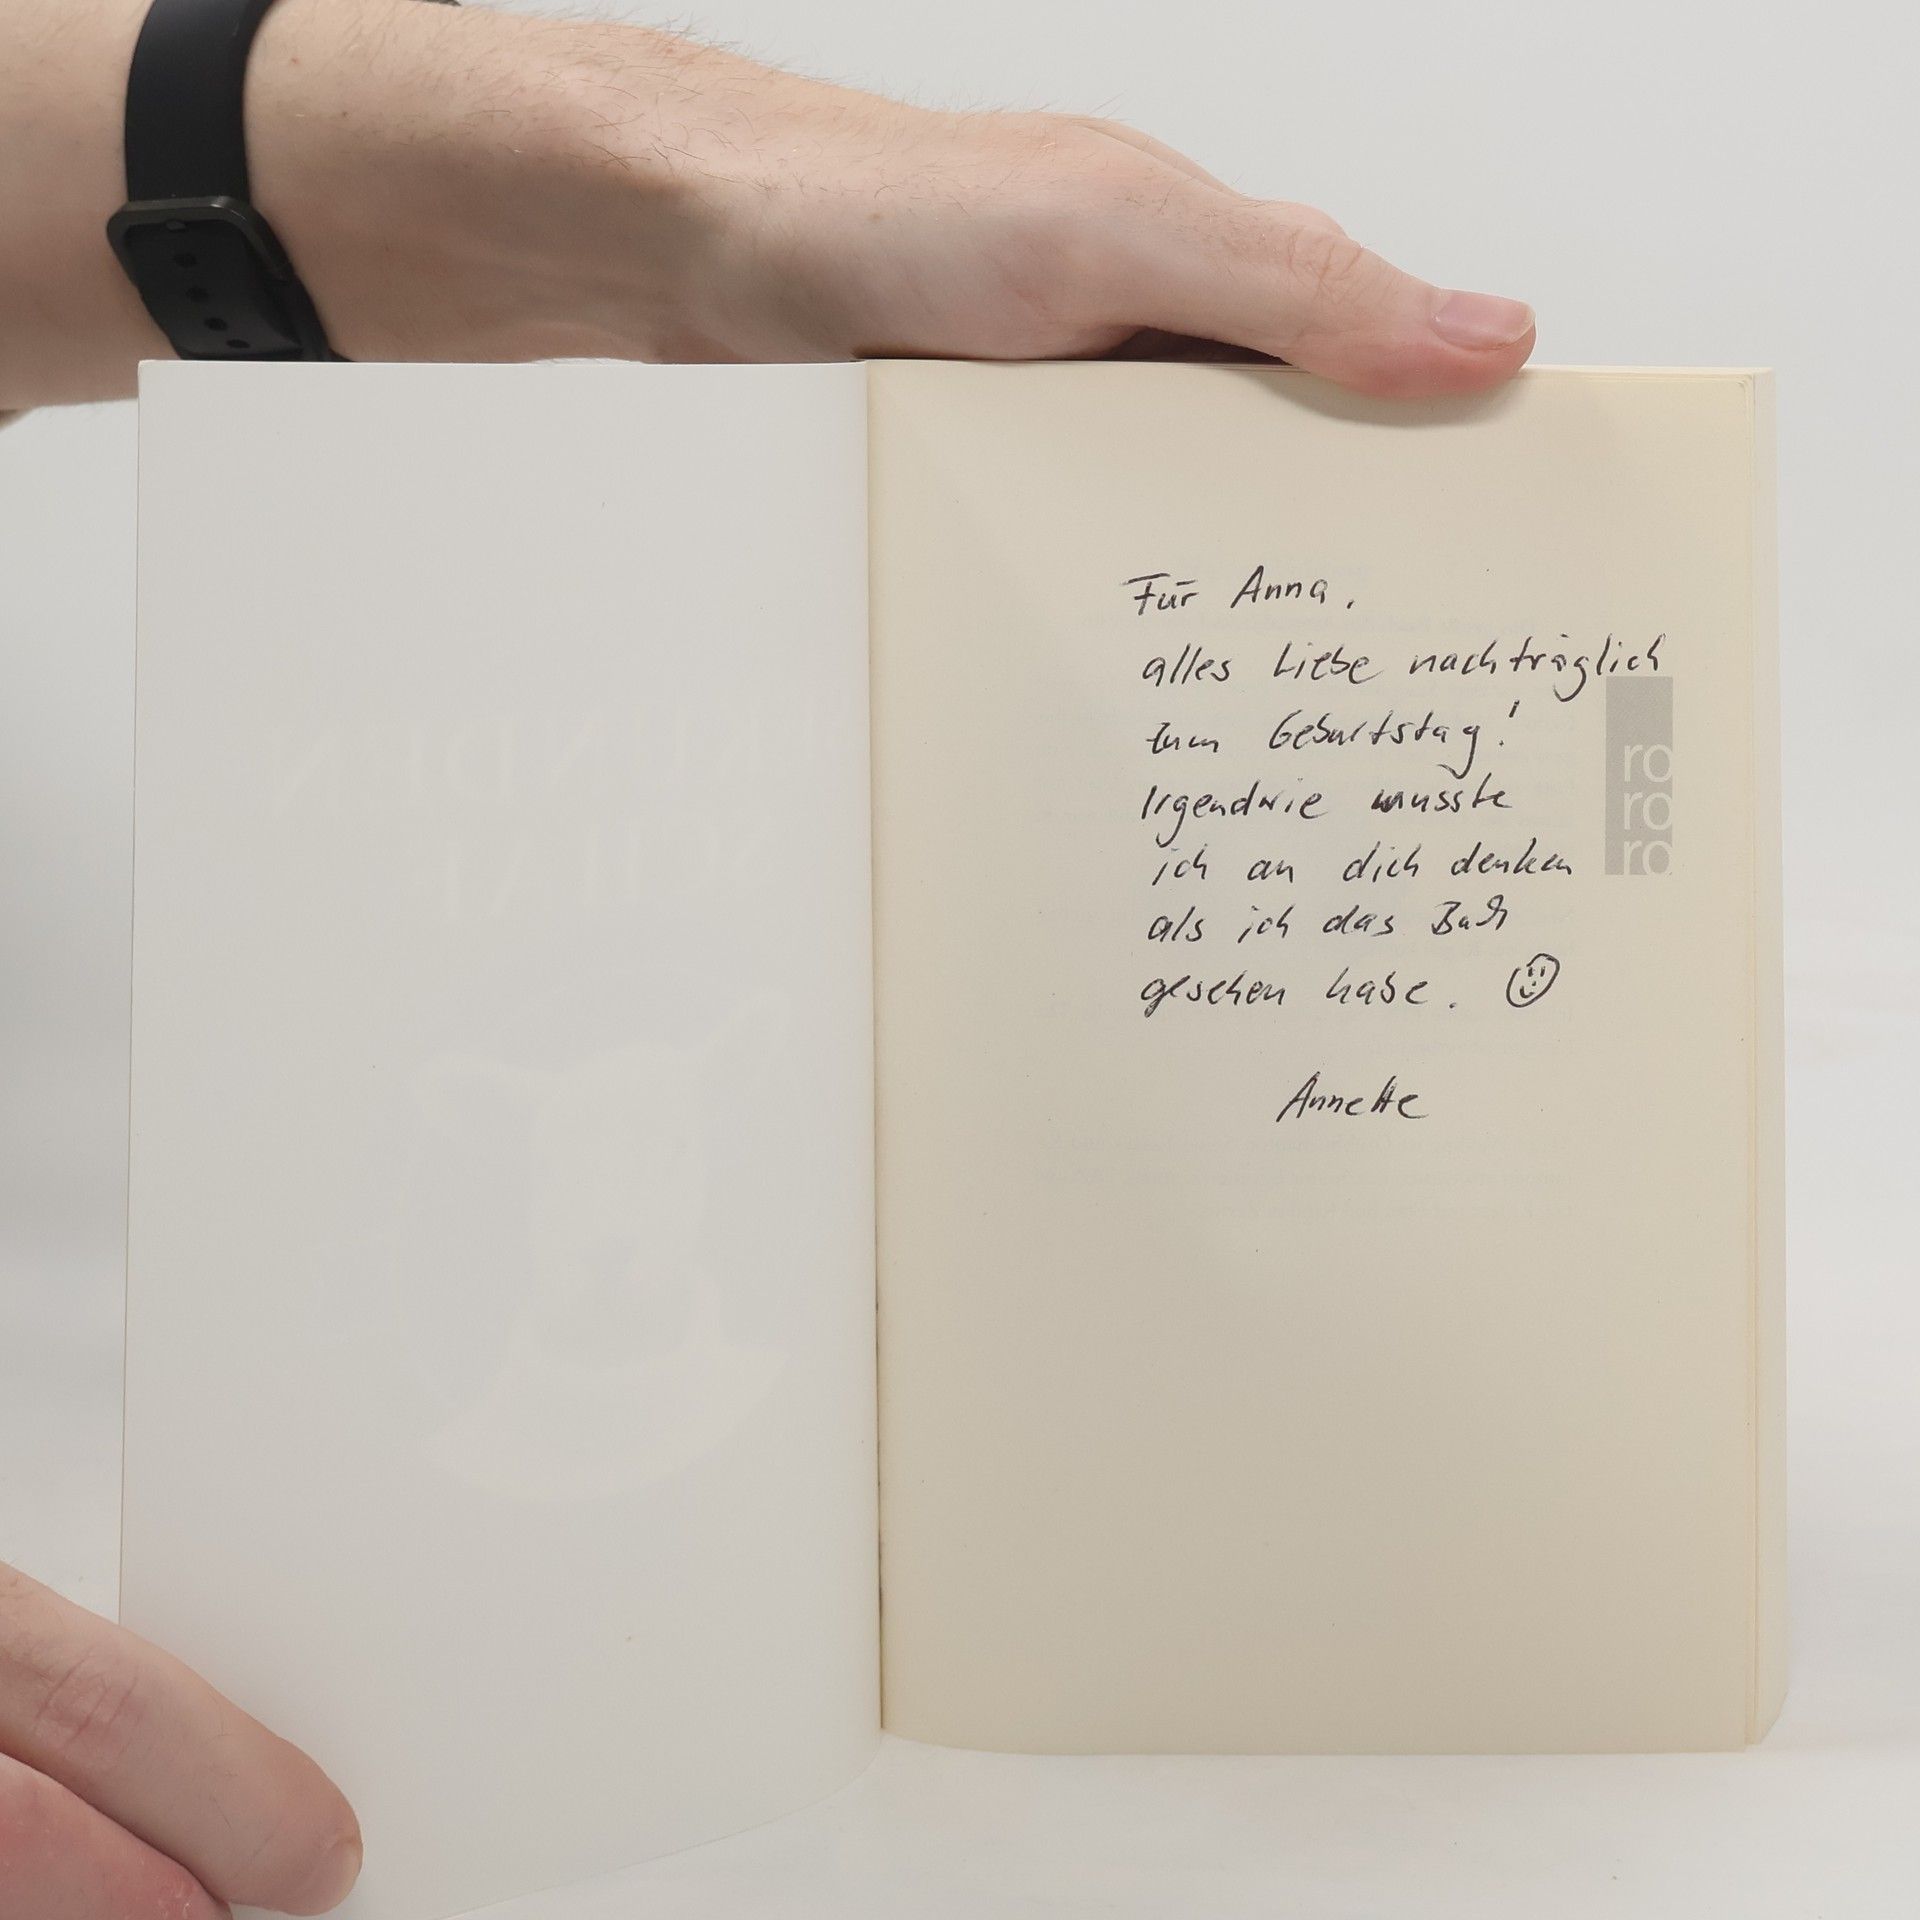 Für Anna,
alles Liebe nachträglich
zum Geburtstag!
Irgendwie musste
ich an dich denken
als ich das Buch
gesehen habe. ☺
Annette
ro
ro
ro